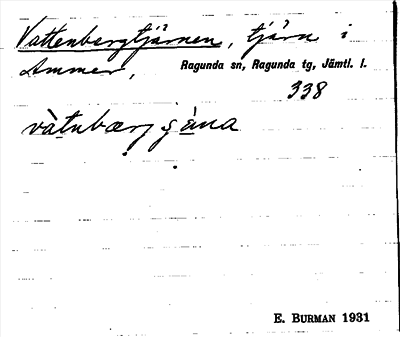 Vattenbergtjärnen, tjärn i
Ammer,
Ragunda sn, Ragunda tg, Jämtl. l.
338
E. BURMAN 1931